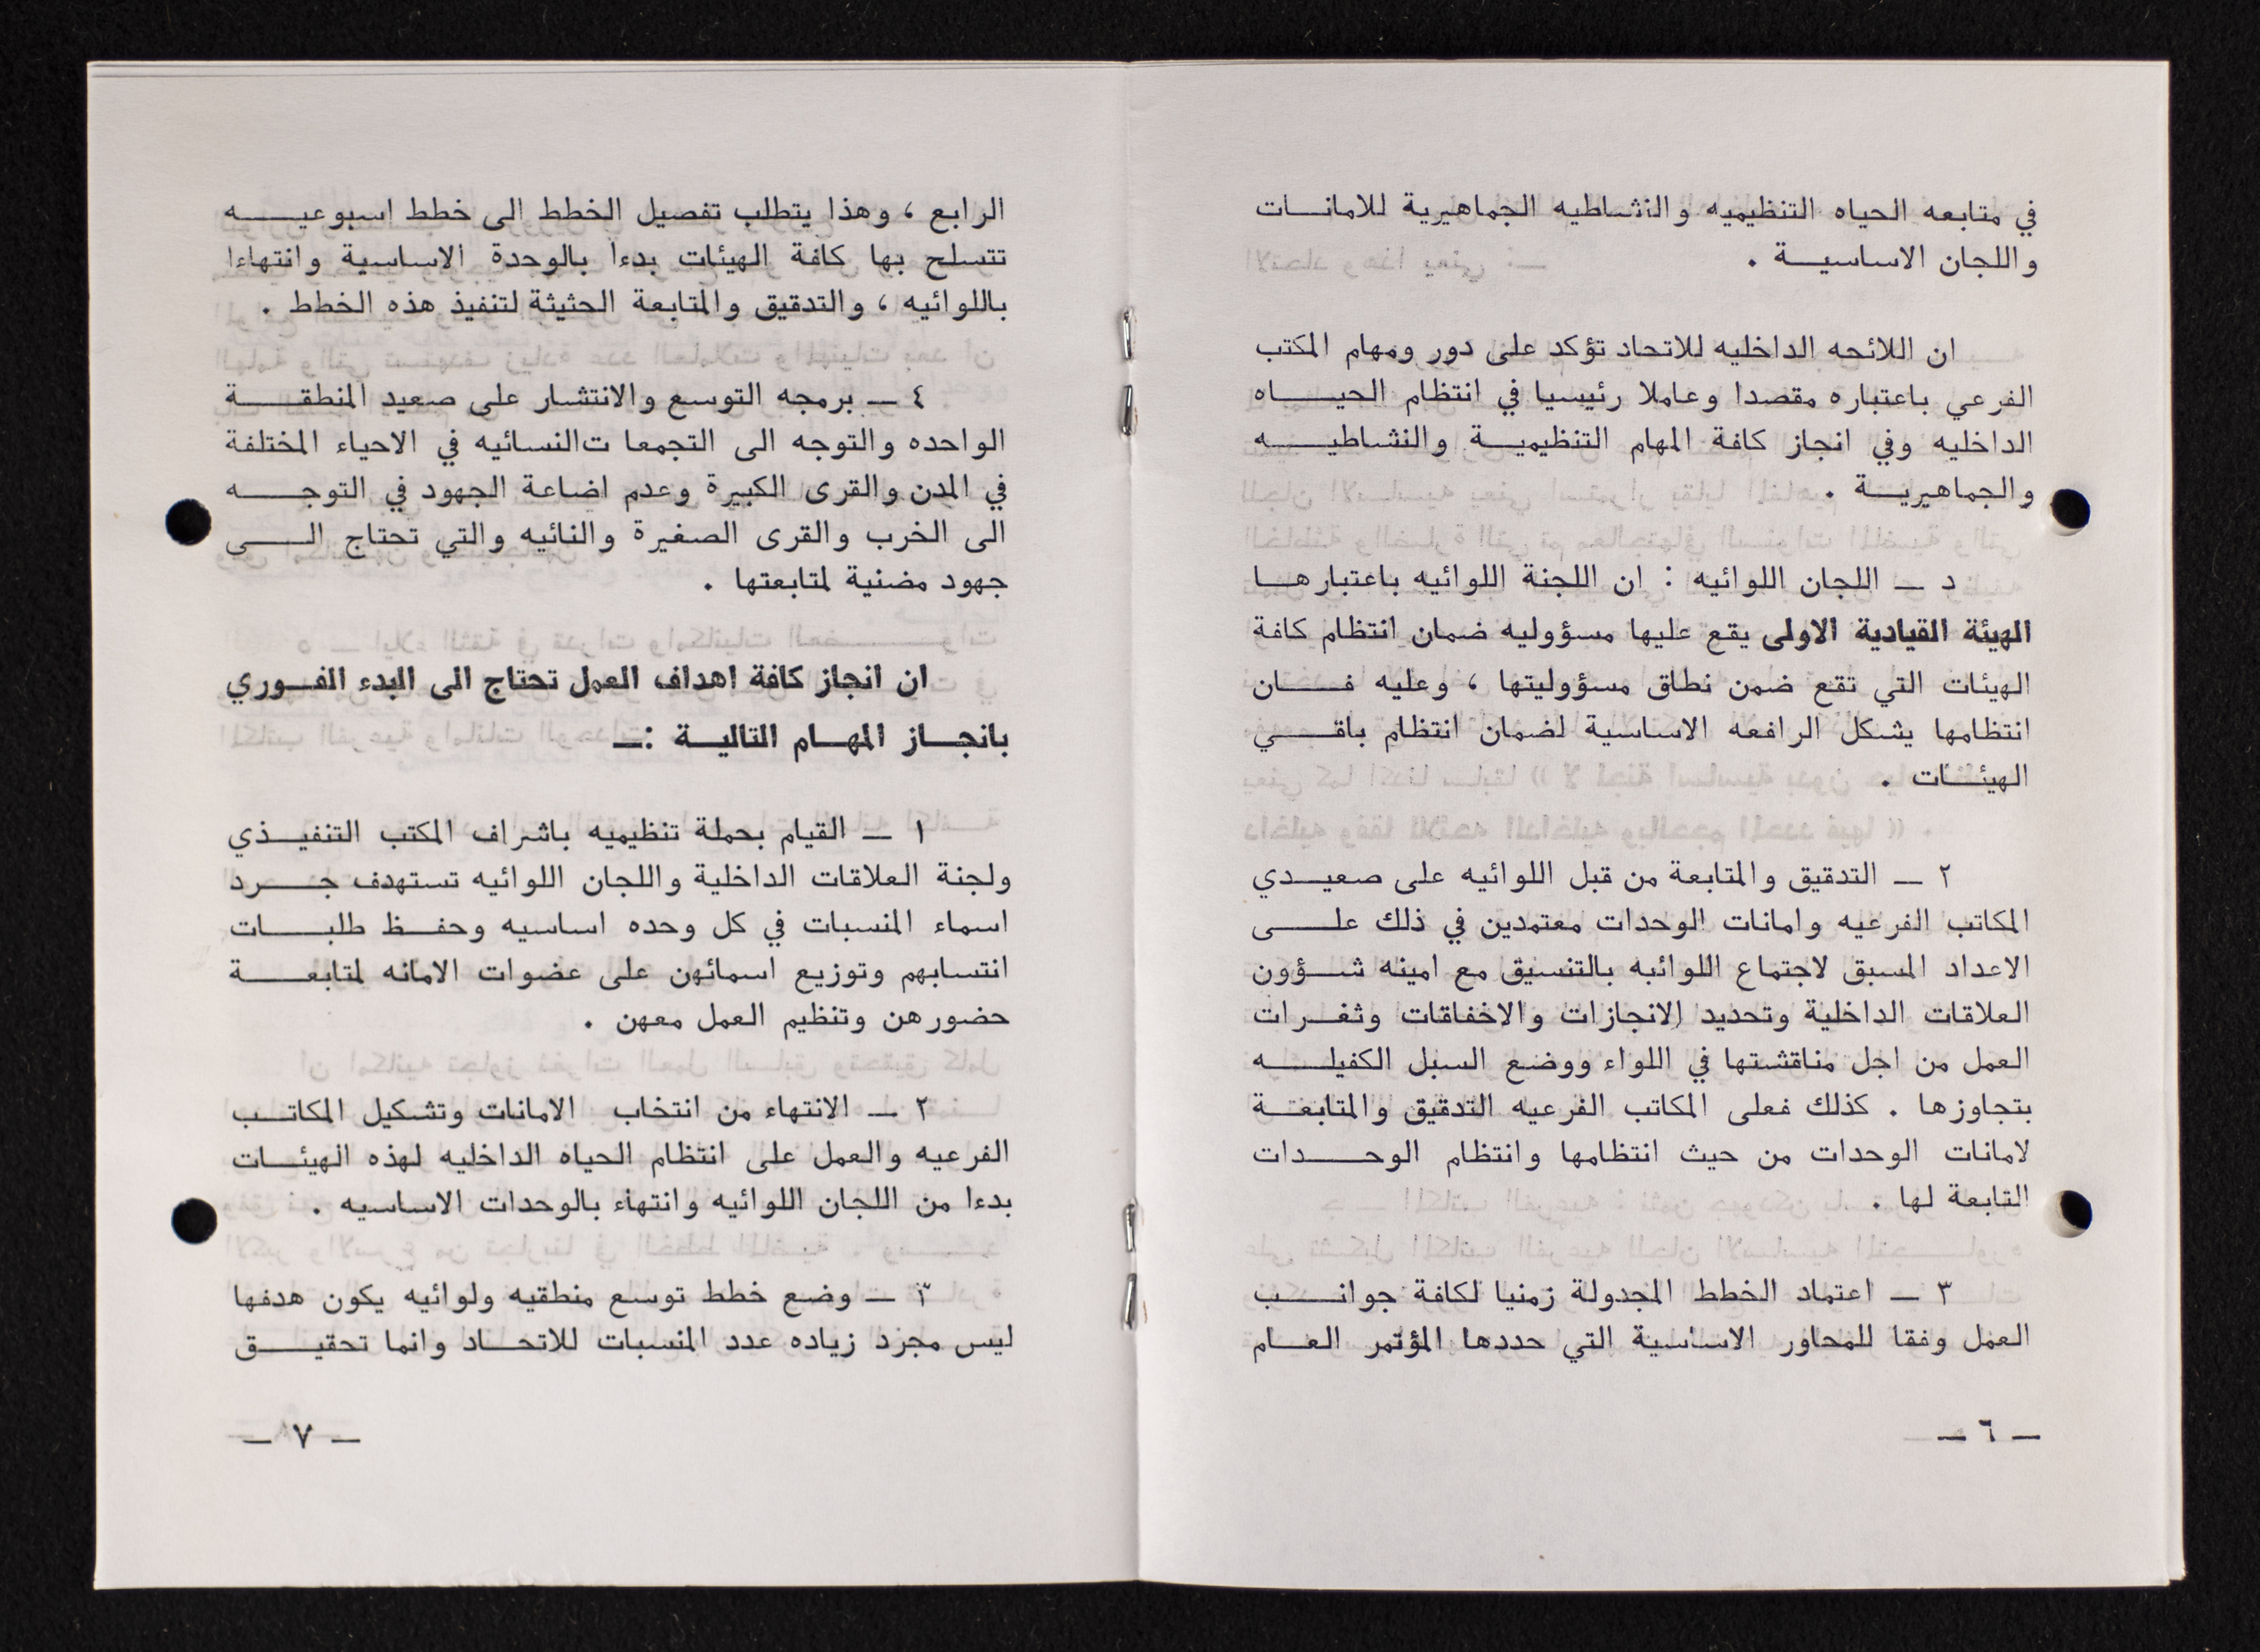 في متابعه الحياه التنظيميه والنشاطيه الجماهيرية للامانات
واللجان الاساسية .
ان اللائحه الداخليه للاتحاد تؤكد على دور ومهام المكتب
الفرعي باعتباره مقصدا وعاملا رئيسيا في انتظام الحياه
الداخليه وفي انجاز كافة المهام التنظيمية والنشاطيه
والجماهيرية .
د ــ اللجان اللوائيه : ان اللجنة اللوائيه باعتبارها
الهيئة القيادية الاولى يقع عليها مسؤوليه ضمان انتظام كافة
الهيئات التي تقع ضمن نطاق مسؤوليتها ، وعليه فان
انتظامها يشكل الرافعه الاساسية لضمان انتظام باقي
الهيئات .
٢ ــ التدقيق والمتابعة من قبل اللوائيه على صعيدي
المكاتب الفرعيه وامانات الوحدات معتمدين في ذلك على
الاعداد المسبق لاجتماع اللوائيه بالتنسيق مع امينه شؤون
العلاقات الداخلية وتحديد الانجازات والاخفاقات وثغرات
العمل من اجل مناقشتها في اللواء ووضع السبل الكفيله
بتجاوزها . كذلك فعلى المكاتب الفرعيه التدقيق والمتابعة
لامانات الوحدات من حيث انتظامها وانتظام الوحدات
التابعة لها .
٣ ــ اعتماد الخطط المجدولة زمنيا لكافة جوانب
العمل وفقا للمحاور الاساسية التي حددها المؤتمر العام
ــ ٦ ــ
الرابع ، وهذا يتطلب تفصيل الخطط الى خطط اسبوعيه
تتسلح بها كافة الهيئات بدءا بالوحدة الاساسية وانتهاءا
باللوائيه ، والتدقيق والمتابعة الحثيثة لتنفيذ هذه الخطط .
٤ ــ برمجه التوسع والانتشار على صعيد المنطقة
الواحده والتوجه الى التجمعا ت النسائيه في الاحياء المختلفة
في المدن والقرى الكبيرة وعدم اضاعة الجهود في التوجه
الى الخرب والقرى الصغيرة والنائيه والتي تحتاج الى
جهود مضنية لمتابعتها .
ان انجاز كافة اهداف العمل تحتاج الى البدء الفوري
بانجاز المهام التالية :ــ
١ ــ القيام بحملة تنظيميه باشراف المكتب التنفيذي
ولجنة العلاقات الداخلية واللجان اللوائيه تستهدف جرد
اسماء المنسبات في كل وحده اساسيه وحفظ طلبات
انتسابهم وتوزيع اسمائهن على عضوات الامانه لمتابعة
حضورهن وتنظيم العمل معهن .
٢ ــ الانتهاء من انتخاب الامانات وتشكيل المكاتب
الفرعيه والعمل على انتظام الحياه الداخليه لهذه الهيئات
بدءا من اللجان اللوائيه وانتهاء بالوحدات الاساسيه .
٣ ــ وضع خطط توسع منطقيه ولوائيه يكون هدفها
ليس مجرد زياده عدد المنسبات للاتحاد وانما تحقيق
ــ ٧ ــ